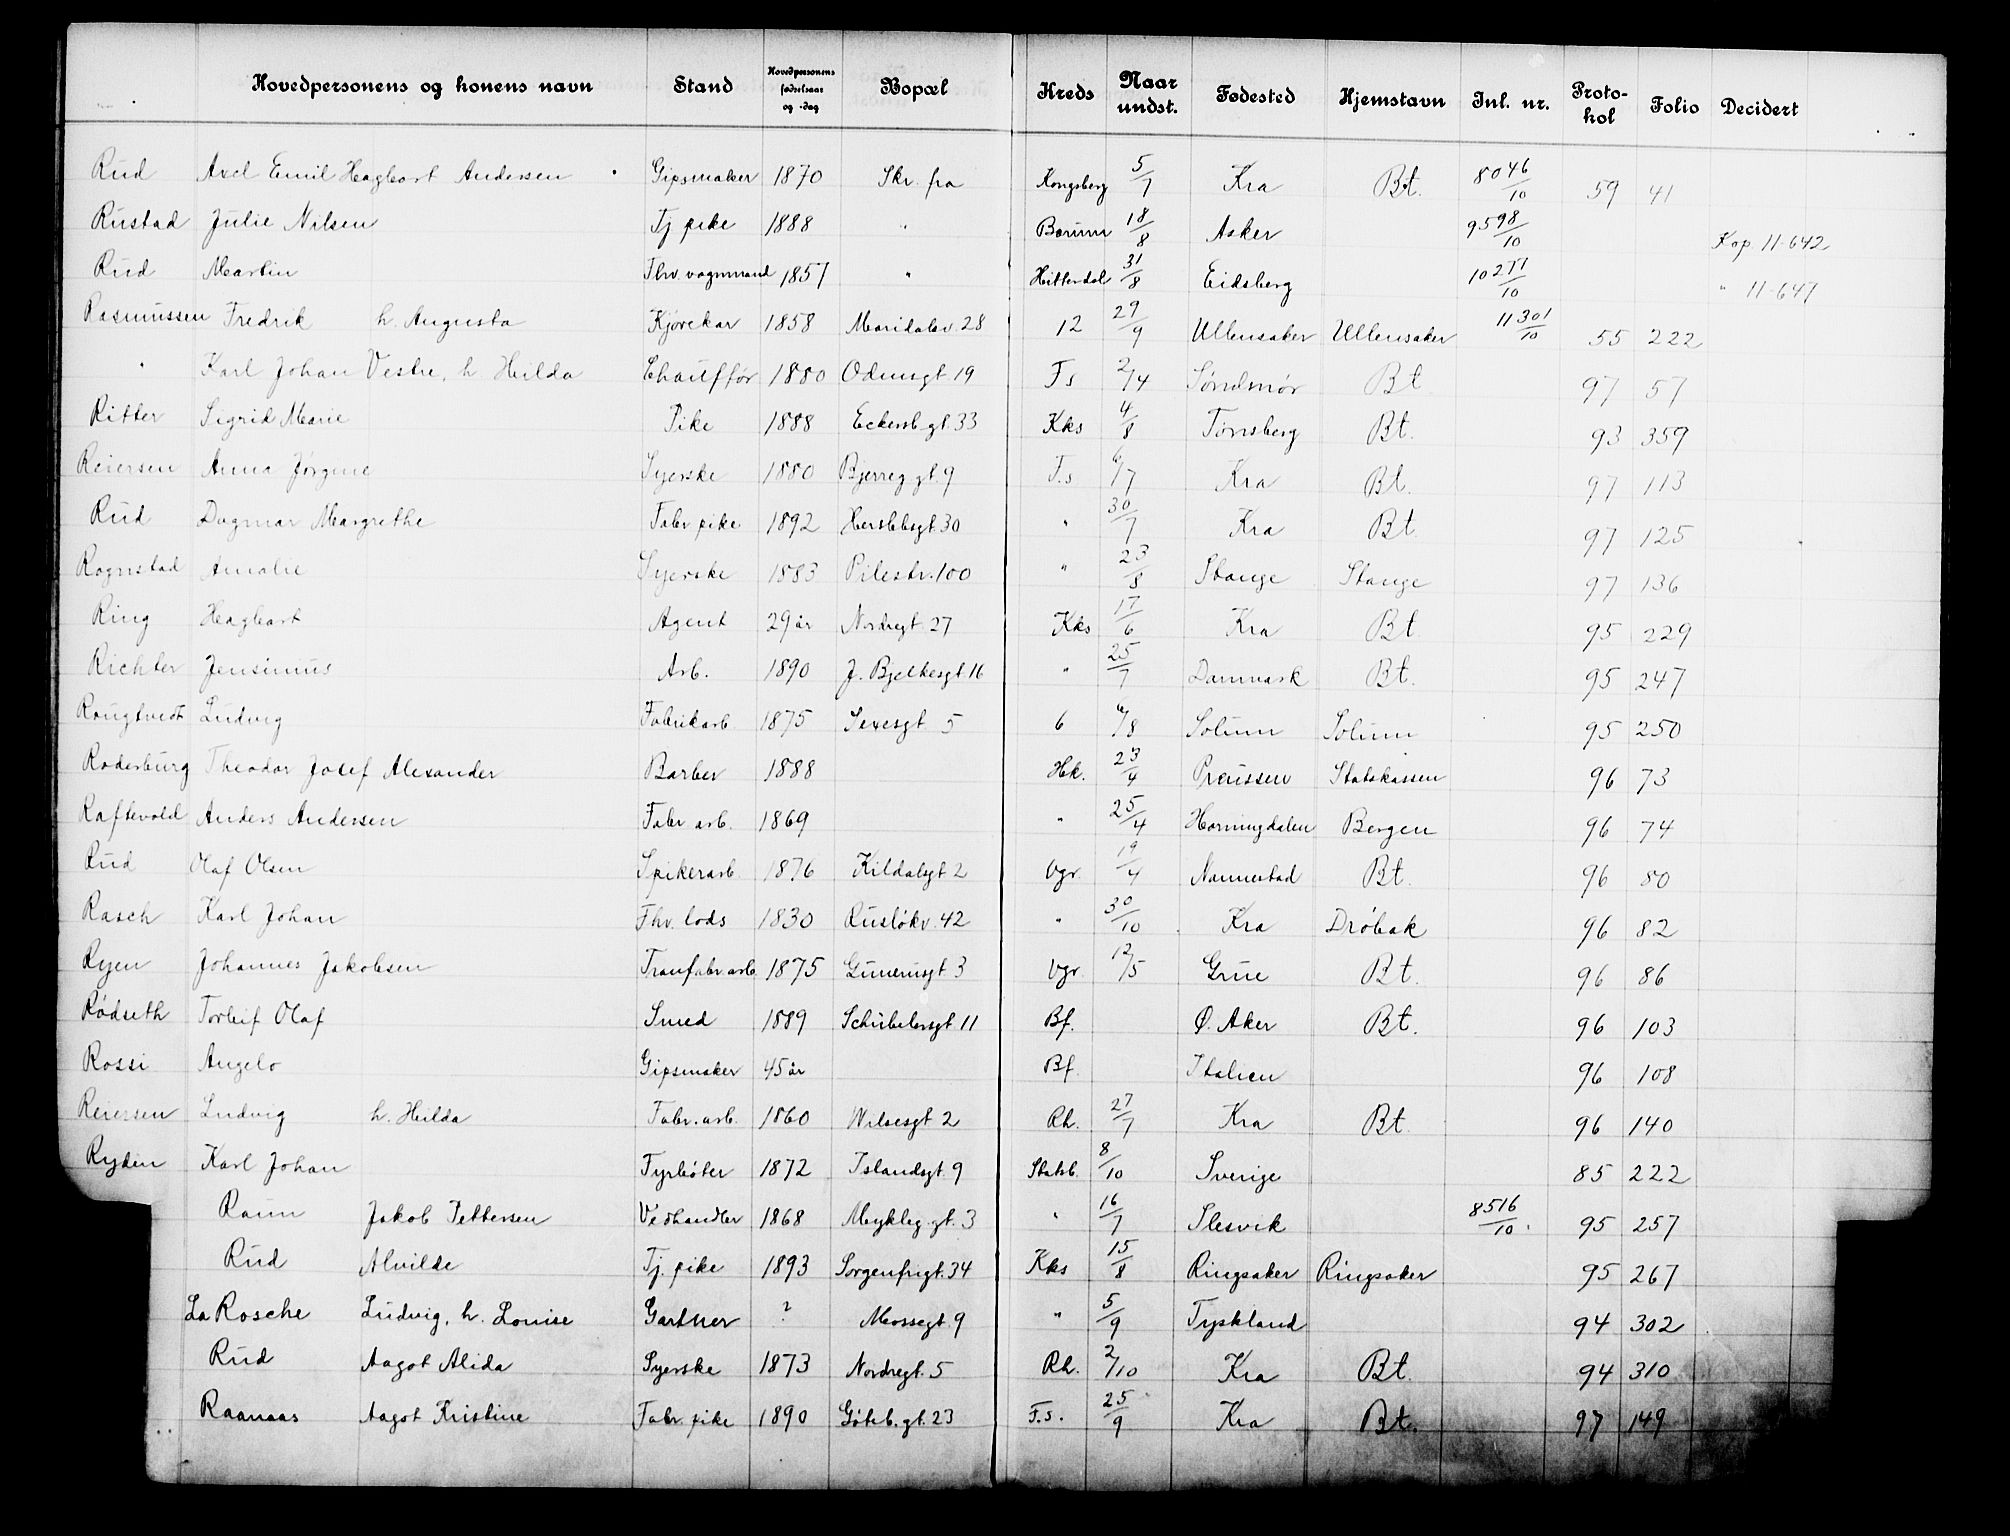 Hovedpersonens og konens navn Stand Hovedpersonens fødselsaar og -dag Bopæl Kreds Naar undst. Fødested Hjemstavn Inl. nr. Proto-kol Folio Decidert
Rud Axel Emil Hagbart Andersen Gipsmaker 1870 Skr. fra Kongsberg 5/7 Kra Bt. 8046/10 59 41
Rustad Julie Nilsen Tj. pike 1888 " Bærum 18/8 Asker 9598/10 Kop. 11-642
Rud Martin Fhv. vognmand 1857 " Hitterdal 31/8 Eidsberg 10277/10 " 11-647
Rasmussen Fredrik h. Augusta Kjørekar 1858 Maridalsv. 28 12 29/9 Ullensaker Ullensaker 11301/10 55 222
" Karl Johan Vestre, h. Hilda Chauffør 1880 Odinsgt. 19 F.s 2/4 Søndmør Bt 97 57
Ritter Sigrid Marie Pike 1888 Eckersb.gt. 33 Kks 4/8 Tønsberg Bt. 93 359
Reiersen Anna Jørgine Syerske 1880 Bjerreg.gt. 9 F.s 6/7 Kra Bt. 97 113
Rud Dagmar Margrethe Fabr. pike 1892 Herslebsgt. 30 " 30/7 Kra Bt. 97 125
Rognstad Amalie Syerske 1883 Pilestr. 100 " 23/8 Stange Stange 97 136
Ring Hagbart Agent 29 år Nordregt. 27 Kks 17/6 Kra Bt 95 229
Richter Jensinius Arb. 1890 J. Bjelkesgt. 16 " 25/7 Danmark Bt. 95 247
Raugtvedt Ludvig Fabrikarb. 1875 Sexesgt. 5 6 6/8 Solum Solum 95 250
Roderburg Theodor Josef Alexander Barber 1888 Hk. 23/4 Preussen Statskassen 96 73
Raftevold Anders Andersen Fabr. arb. 1869 " 25/4 Horningdalen Bergen 96 74
Rud Olaf Olsen Spikerarb. 1876 Kildalsgt 2 Vgr. 19/4 Nannestad Bt. 96 80
Rasch Karl Johan Fhv. lods 1830 Rusløkv. 42 " 30/10 Kra Drøbak 96 82
Ryen Johannes Jakobsen Tranfabr.arb. 1875 Gunerusgt. 3 Vgr. 12/5 Grue Bt. 96 86
Rødseth Torleif Olaf Smed 1889 Schübelersgt. 11 Bf. Ø. Aker Bt. 96 103
Rossi Angelo Gipsmaker 45 år Bf. Italien 96 108
Reiersen Ludvig h. Hilda Fabr. arb. 1860 Nilsesgt. 2 Rh. 27/7 Kra Bt. 96 140
Ryden Karl Johan Fyrbøter 1872 Islandsgt. 9 Statsb. 8/10 Sverige 85 222
Raun Jakob Pettersen Vedhandler 1868 Mykleg.gt. 3 " 16/7 Slesvik 8516/10 95 257
Rud Alvilde Tj. pike 1893 Sorgenfrigt. 34 Kks 15/8 Ringsaker Ringsaker 95 267
La Rosche Ludvig, h. Louise Gartner ? Mossegt. 9 " 5/9 Tyskland 94 302
Rud Aagot Alida Syerske 1873 Nordregt. 5 Rh. 2/10 Kra Bt. 94 310
Raanaas Aagot Kristine Fabr. pike 1890 Gøteb.gt. 23 F.s. 25/9 Kra Bt. 97 149